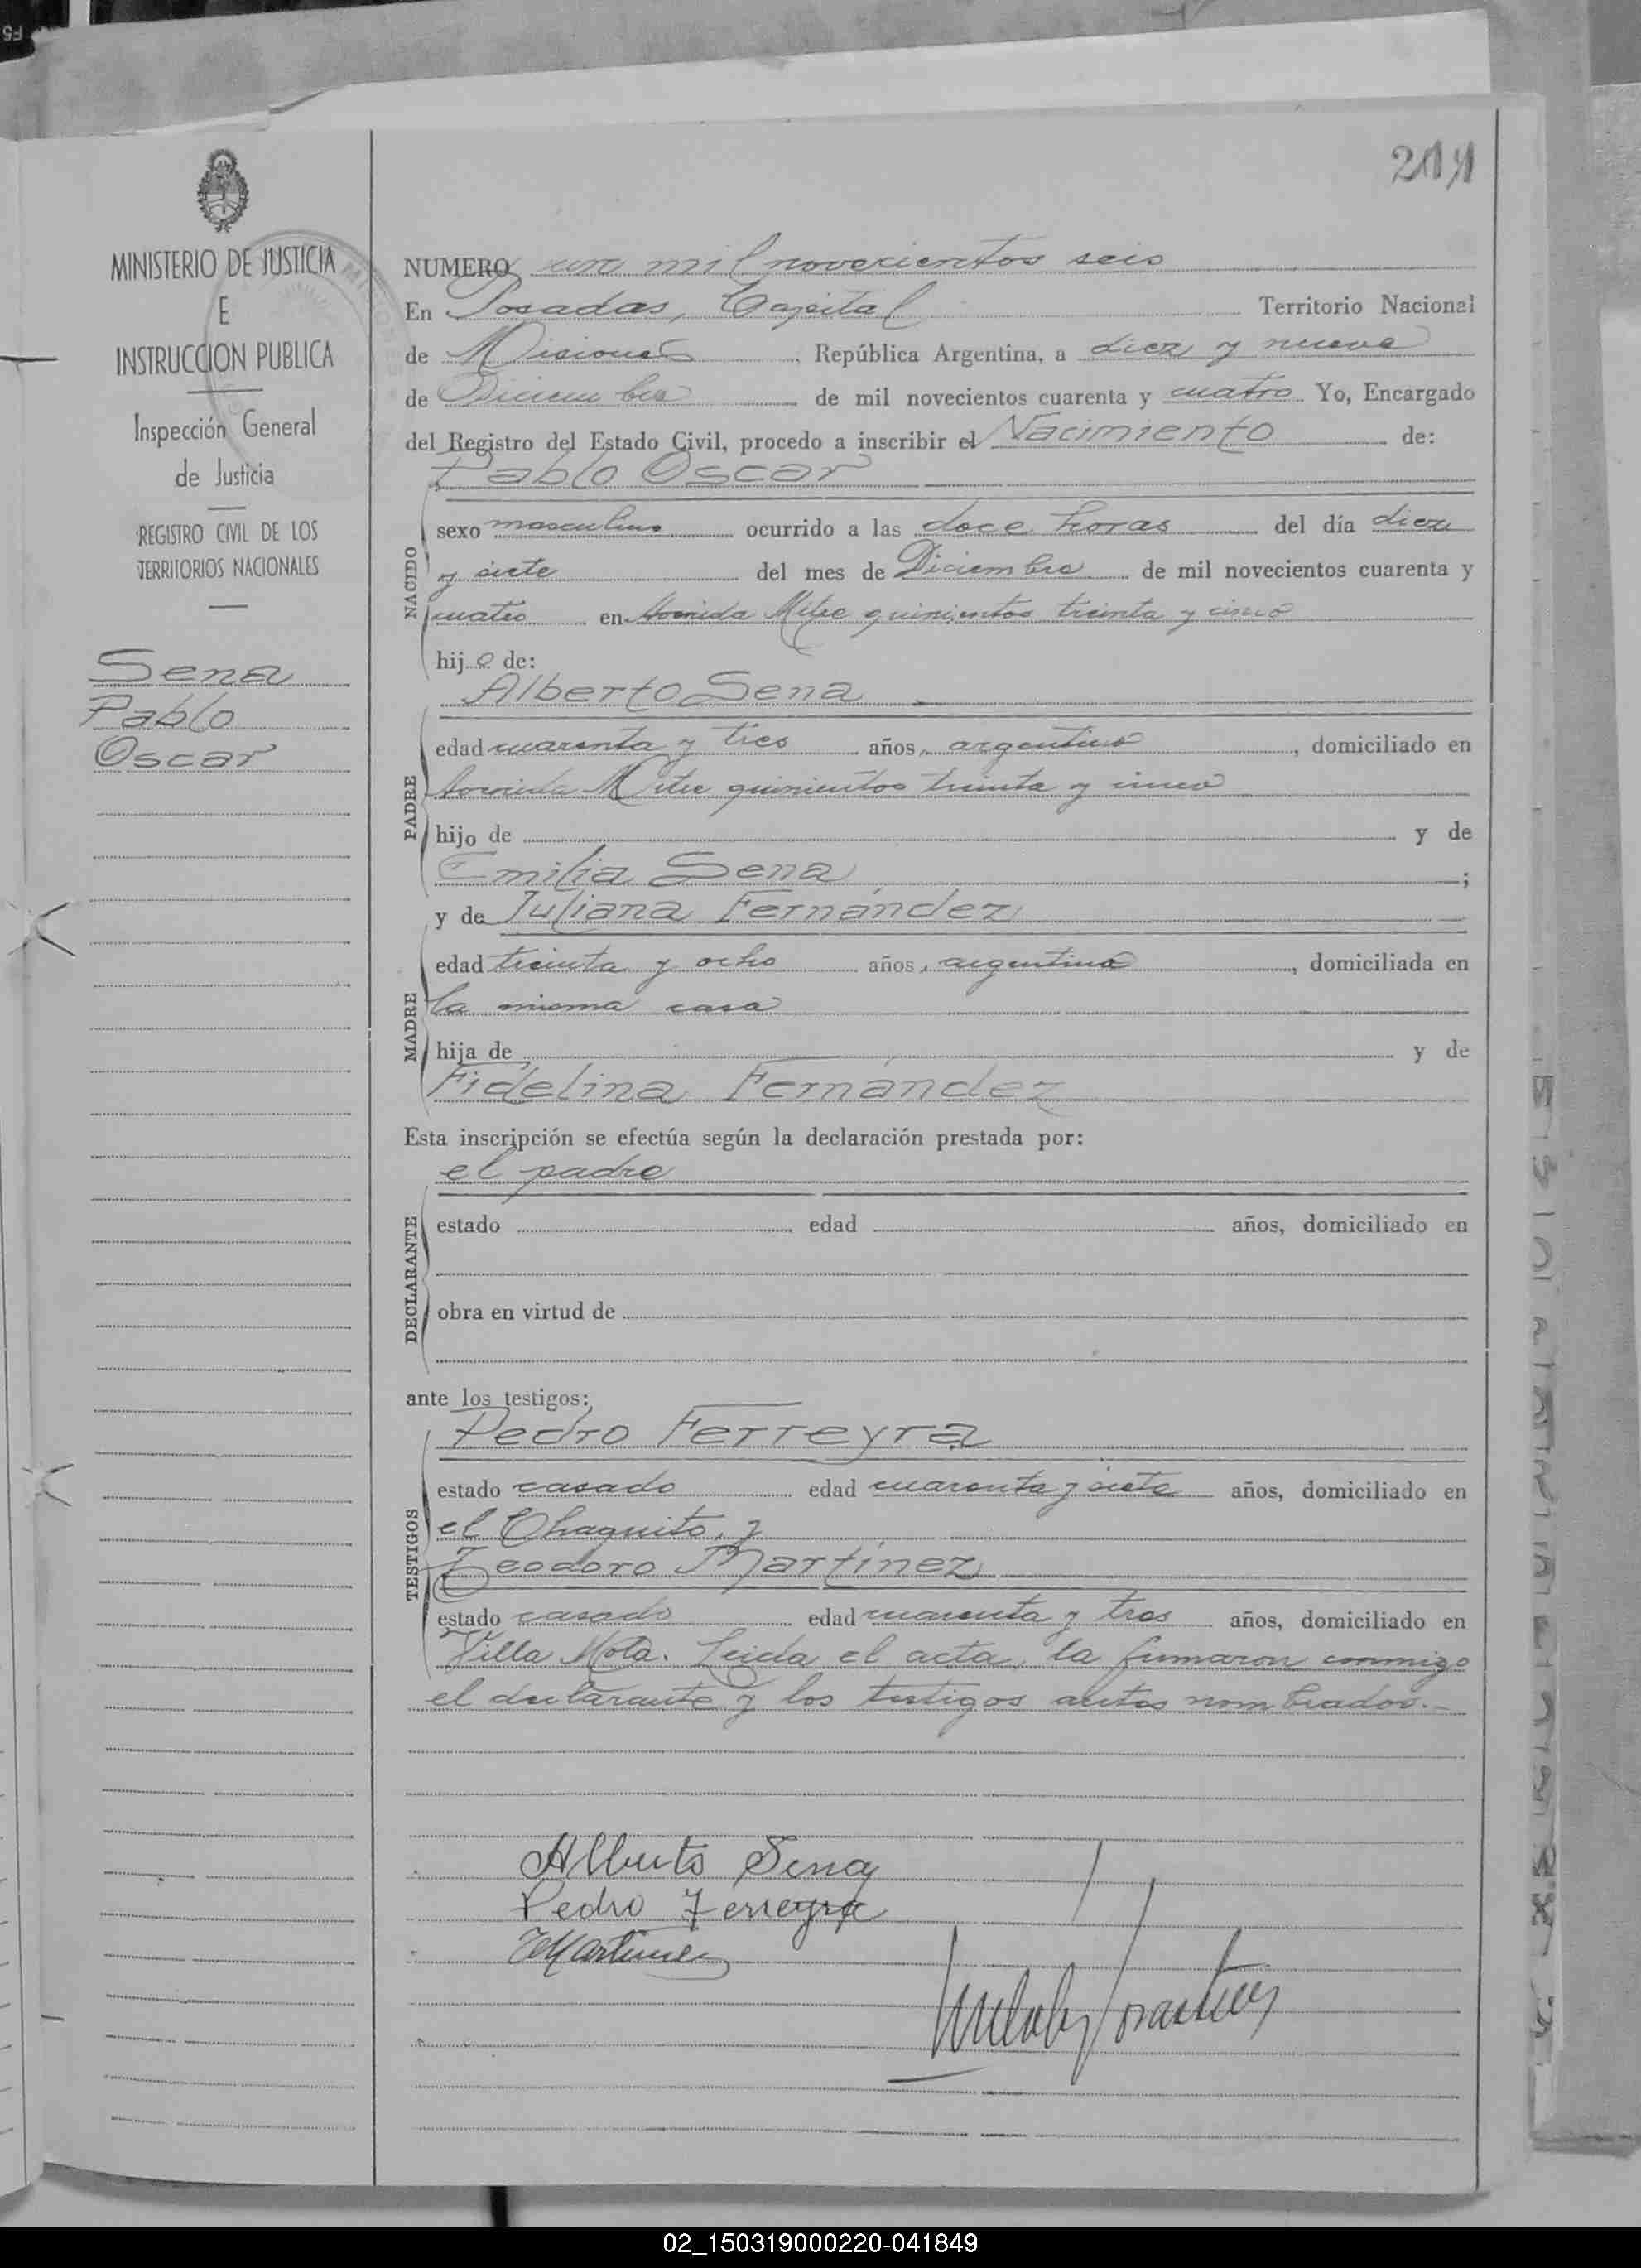 MINISTERIO DE JUSTICIA
E
INSTRUCCION PUBLICA
Inspección General
de Justicia
REGISTRO CIVIL DE LOS
TERRITORIOS NACIONALES
Sena
Pablo
Oscar
NUMERO un mil novecientos seis
En Posadas, Capital Territorio Nacional
de Misiones, República Argentina, a diez y nueve
de Diciembre de mil novecientos cuarenta y cuatro Yo, Encargado
del Registro del Estado Civil, procedo a inscribir el Nacimiento de:
Pablo Oscar
NACIDO
sexo masculino ocurrido a las doce horas del día diez
y siete del mes de Diciembre de mil novecientos cuarenta y
cuatro en Avenida Mitre quinientos treinta y cinco
hijo de:
Alberto Sena
PADRE
edad cuarenta y tres años, argentino, domiciliado en
Avenida Mitre quinientos treinta y cinco
hijo de y de
Emilia Sena;
y de Juliana Fernández
MADRE
edad treinta y ocho años, argentina, domiciliada en
la misma casa
hija de y de
Fidelina Fernández
Esta inscripción se efectúa según la declaración prestada por:
el padre
DECLARANTE
estado edad años, domiciliado en
obra en virtud de
ante los testigos:
Pedro Ferreyra
TESTIGOS
estado casado edad cuarenta y siete años, domiciliado en
el Chaquito, y
Teodoro Martínez
estado casado edad cuarenta y tres años, domiciliado en
Villa Mola. Leida el acta, la firmaron conmigo
el declarante y los testigos antes nombrados.-
Alberto Sena
Pedro Ferreyra
TMartinez
02_150319000220-041849